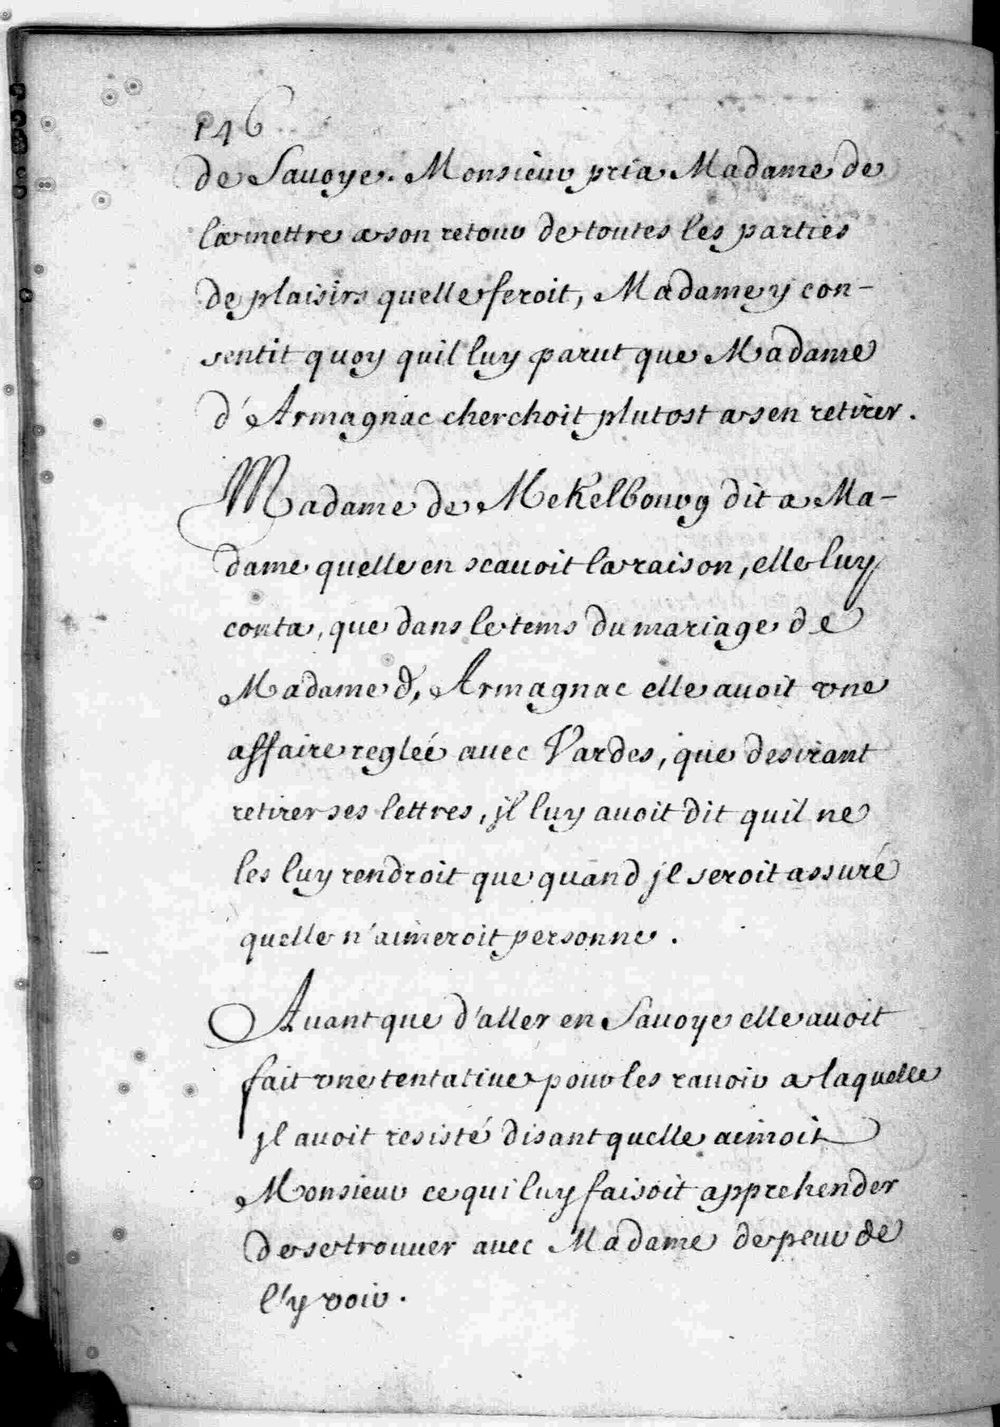 146
de Sauoye. Monsieur pria Madame de
la mettre a son retour de toutes les parties
de plaisirs quelle feroit, Madame y con-
sentit quoy quil luy parut que Madame
d'Armagnac cherchoit plutost a sen retirer.
Madame de Mekelbourg dit a Ma-
dame quelle en scauoit la raison, elle luy
conta, que dans le tems du mariage de
Madame d, Armagnac elle auoit vne
affaire regleé auec Vardes, que desirant
retirer ses lettres, jl luy auoit dit quil ne
les luy rendroit que quand jl seroit assuré
quelle n'aimeroit personne.
Auant que d'aller en Sauoye elle auoit
fait vne tentatiue pour les rauoir a laquelle
jl auoit resisté disant quelle aimoit
Monsieur ce qui luy faisoit apprehender
de se trouuer auec Madame de peur de
l'y voir.